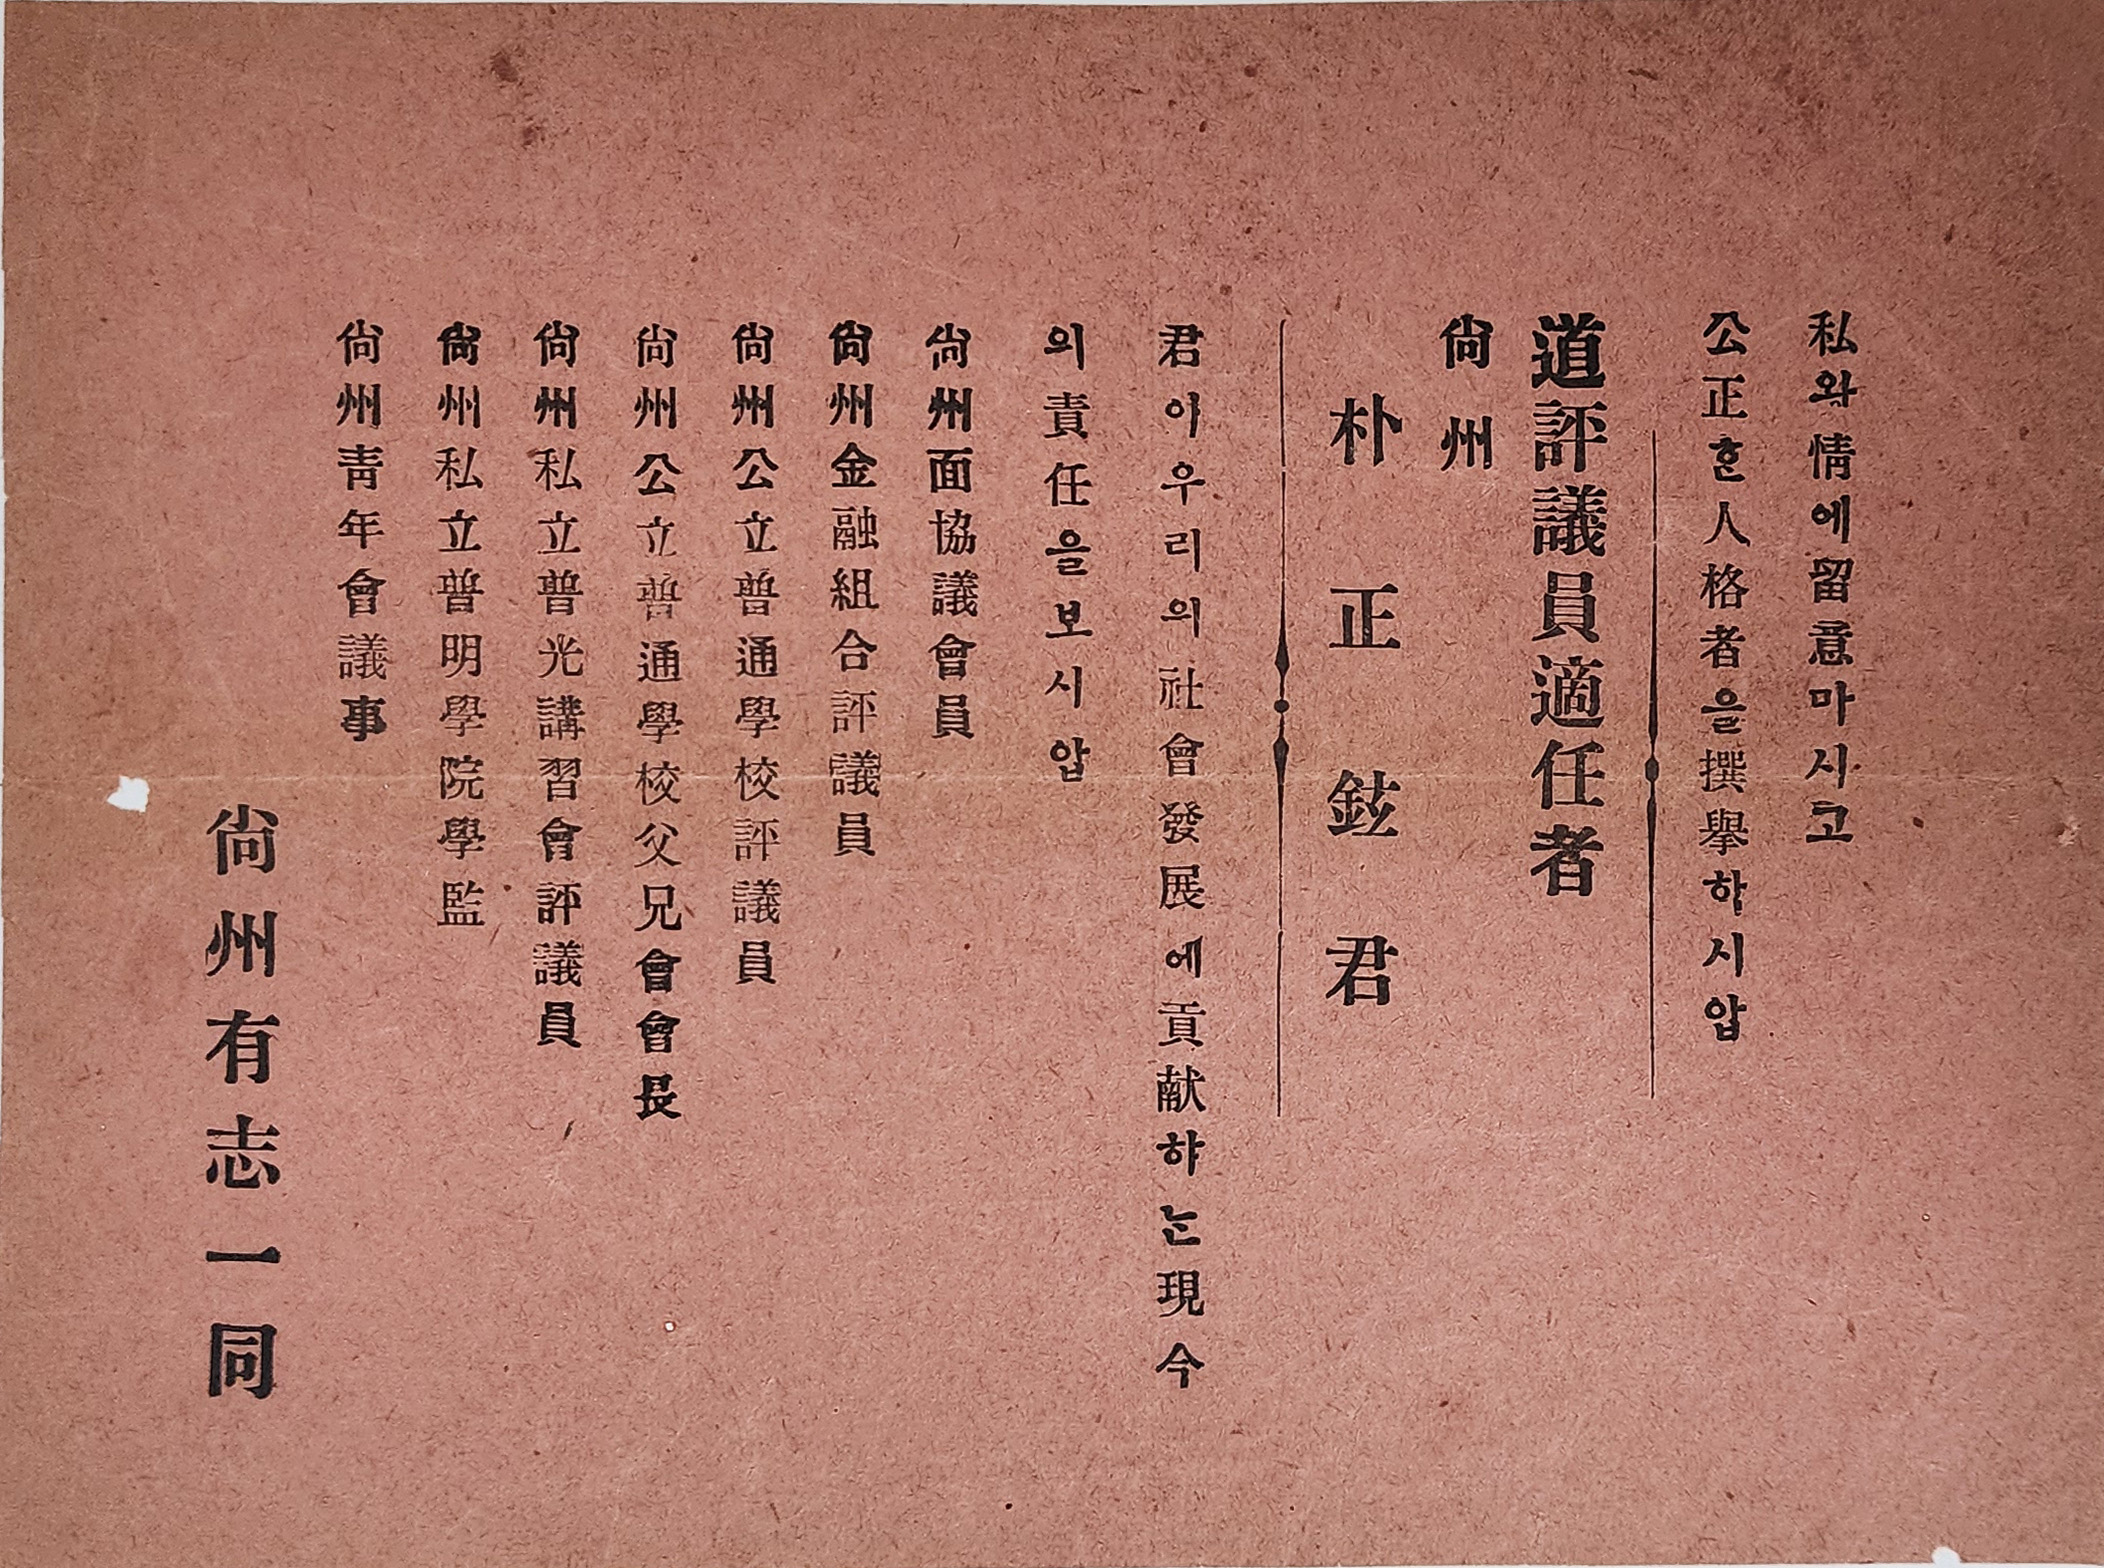 私와情에留意마시고
公正한人格者을撰擧하시압
道評議員適任者
尙州
朴正鉉君
君이우리의社會發展에貢献하는現今
의責任을보시압
尙州面協議會員
尙州金融組合評議員
尙州公立普通學校評議員
尙州公立普通學校父兄會會長
尙州私立普光講習會評議員
尙州私立普明學院學監
尙州靑年會議事
尙州有志一同